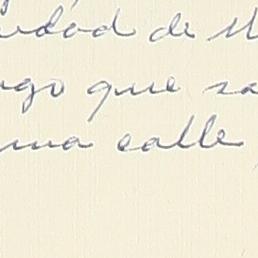 udad de
ngo que sa
una calle